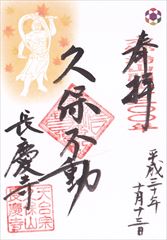 奉拝
平成二十年
十月十三日
久保不動
長慶寺
天台宗
長慶寺